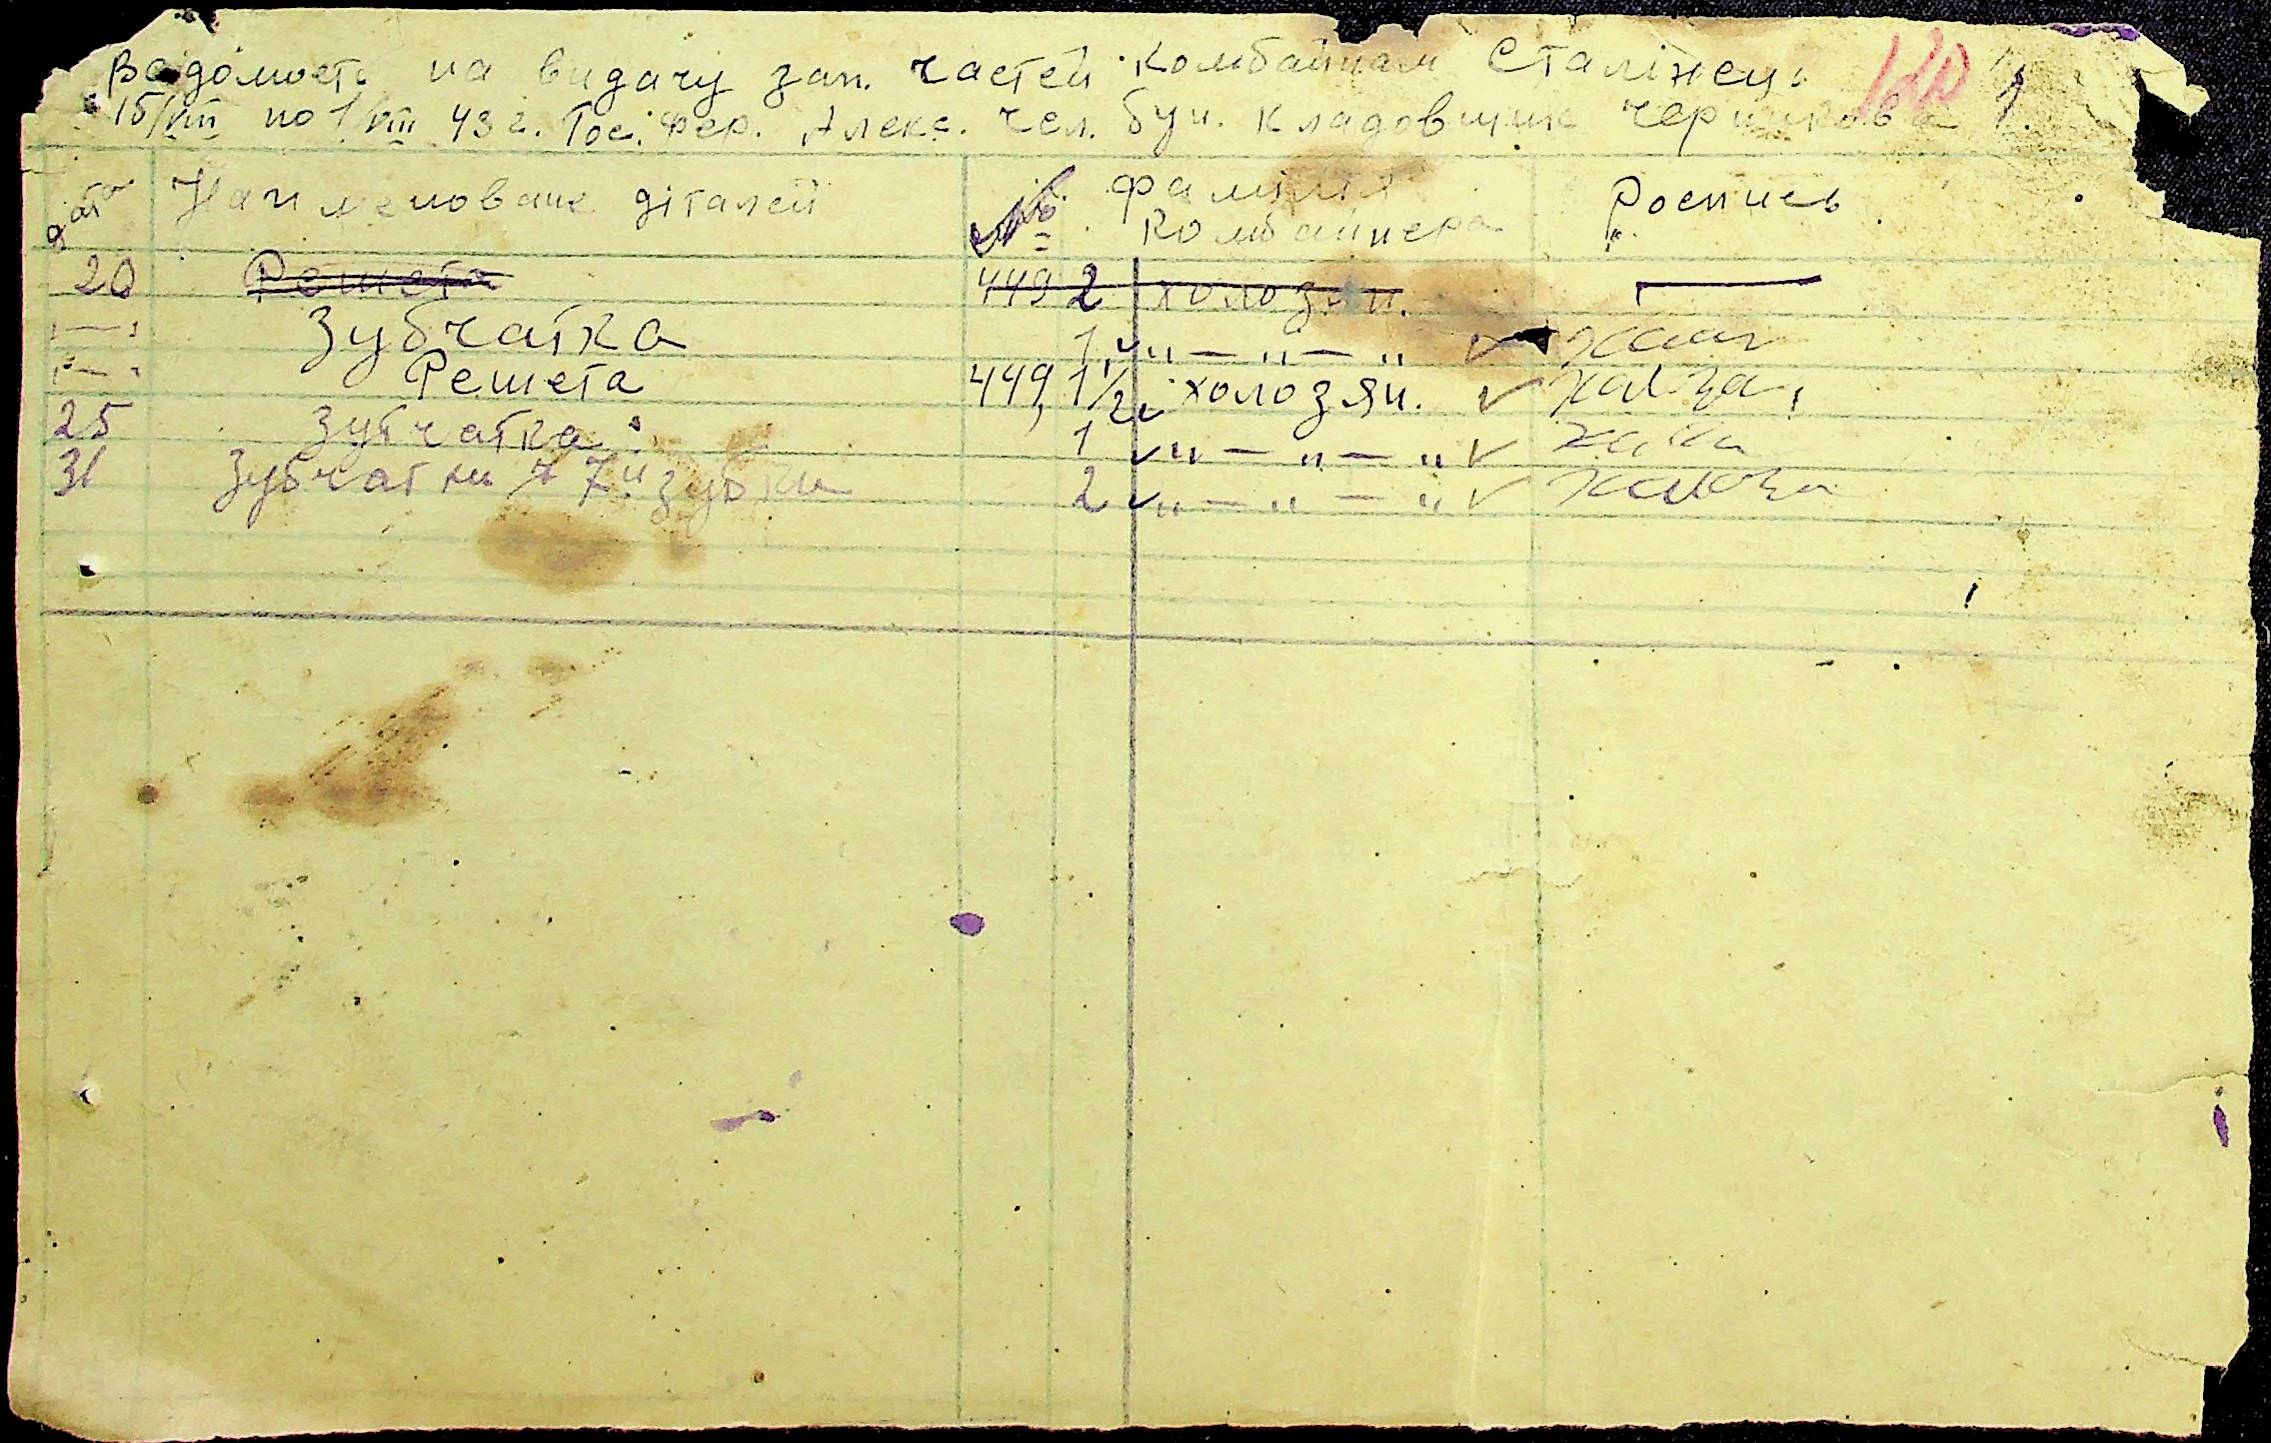 Ведомость на видачу зап. частей комбайнам Сталінець
15/VIII по 1/VIII 43 г. Гос. Фер. Алекс. Чел. Бун. кладовщик Черникова 1.
дата Наименоване діталей № Фамілія комбайнера Роспись
20 Решета 449 2 холозян.
1 Зубчатка 1 „ — „ — „
Решета 449 1 1/2 холозян.
25 Зубчатка 1 „ — „ — „
31 Зубчатки 7 зубки 2 „ — „ — „